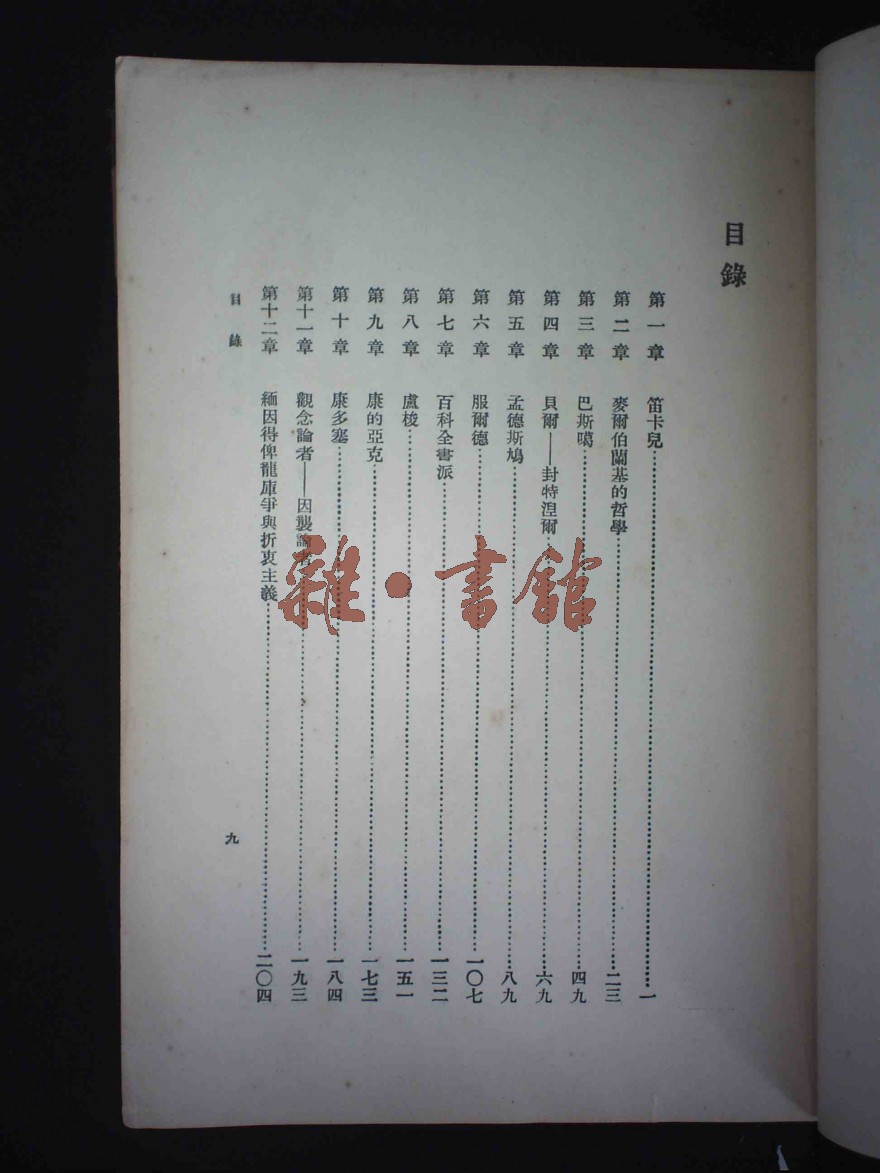 目錄
第一章 笛卡兒………一
第二章 麥爾伯蘭基的哲學………二三
第三章 巴斯噶………四九
第四章 貝爾——封特涅爾………六九
第五章 孟德斯鳩………八九
第六章 服爾德………一〇七
第七章 百科全書派………一三二
第八章 盧梭………一五一
第九章 康的亞克………一七三
第十章 康多塞………一八四
第十一章 觀念論者——因襲論者………一九三
第十二章 緬因得俾龍庫爭與折衷主義………二〇四
目錄
九
雜·書館